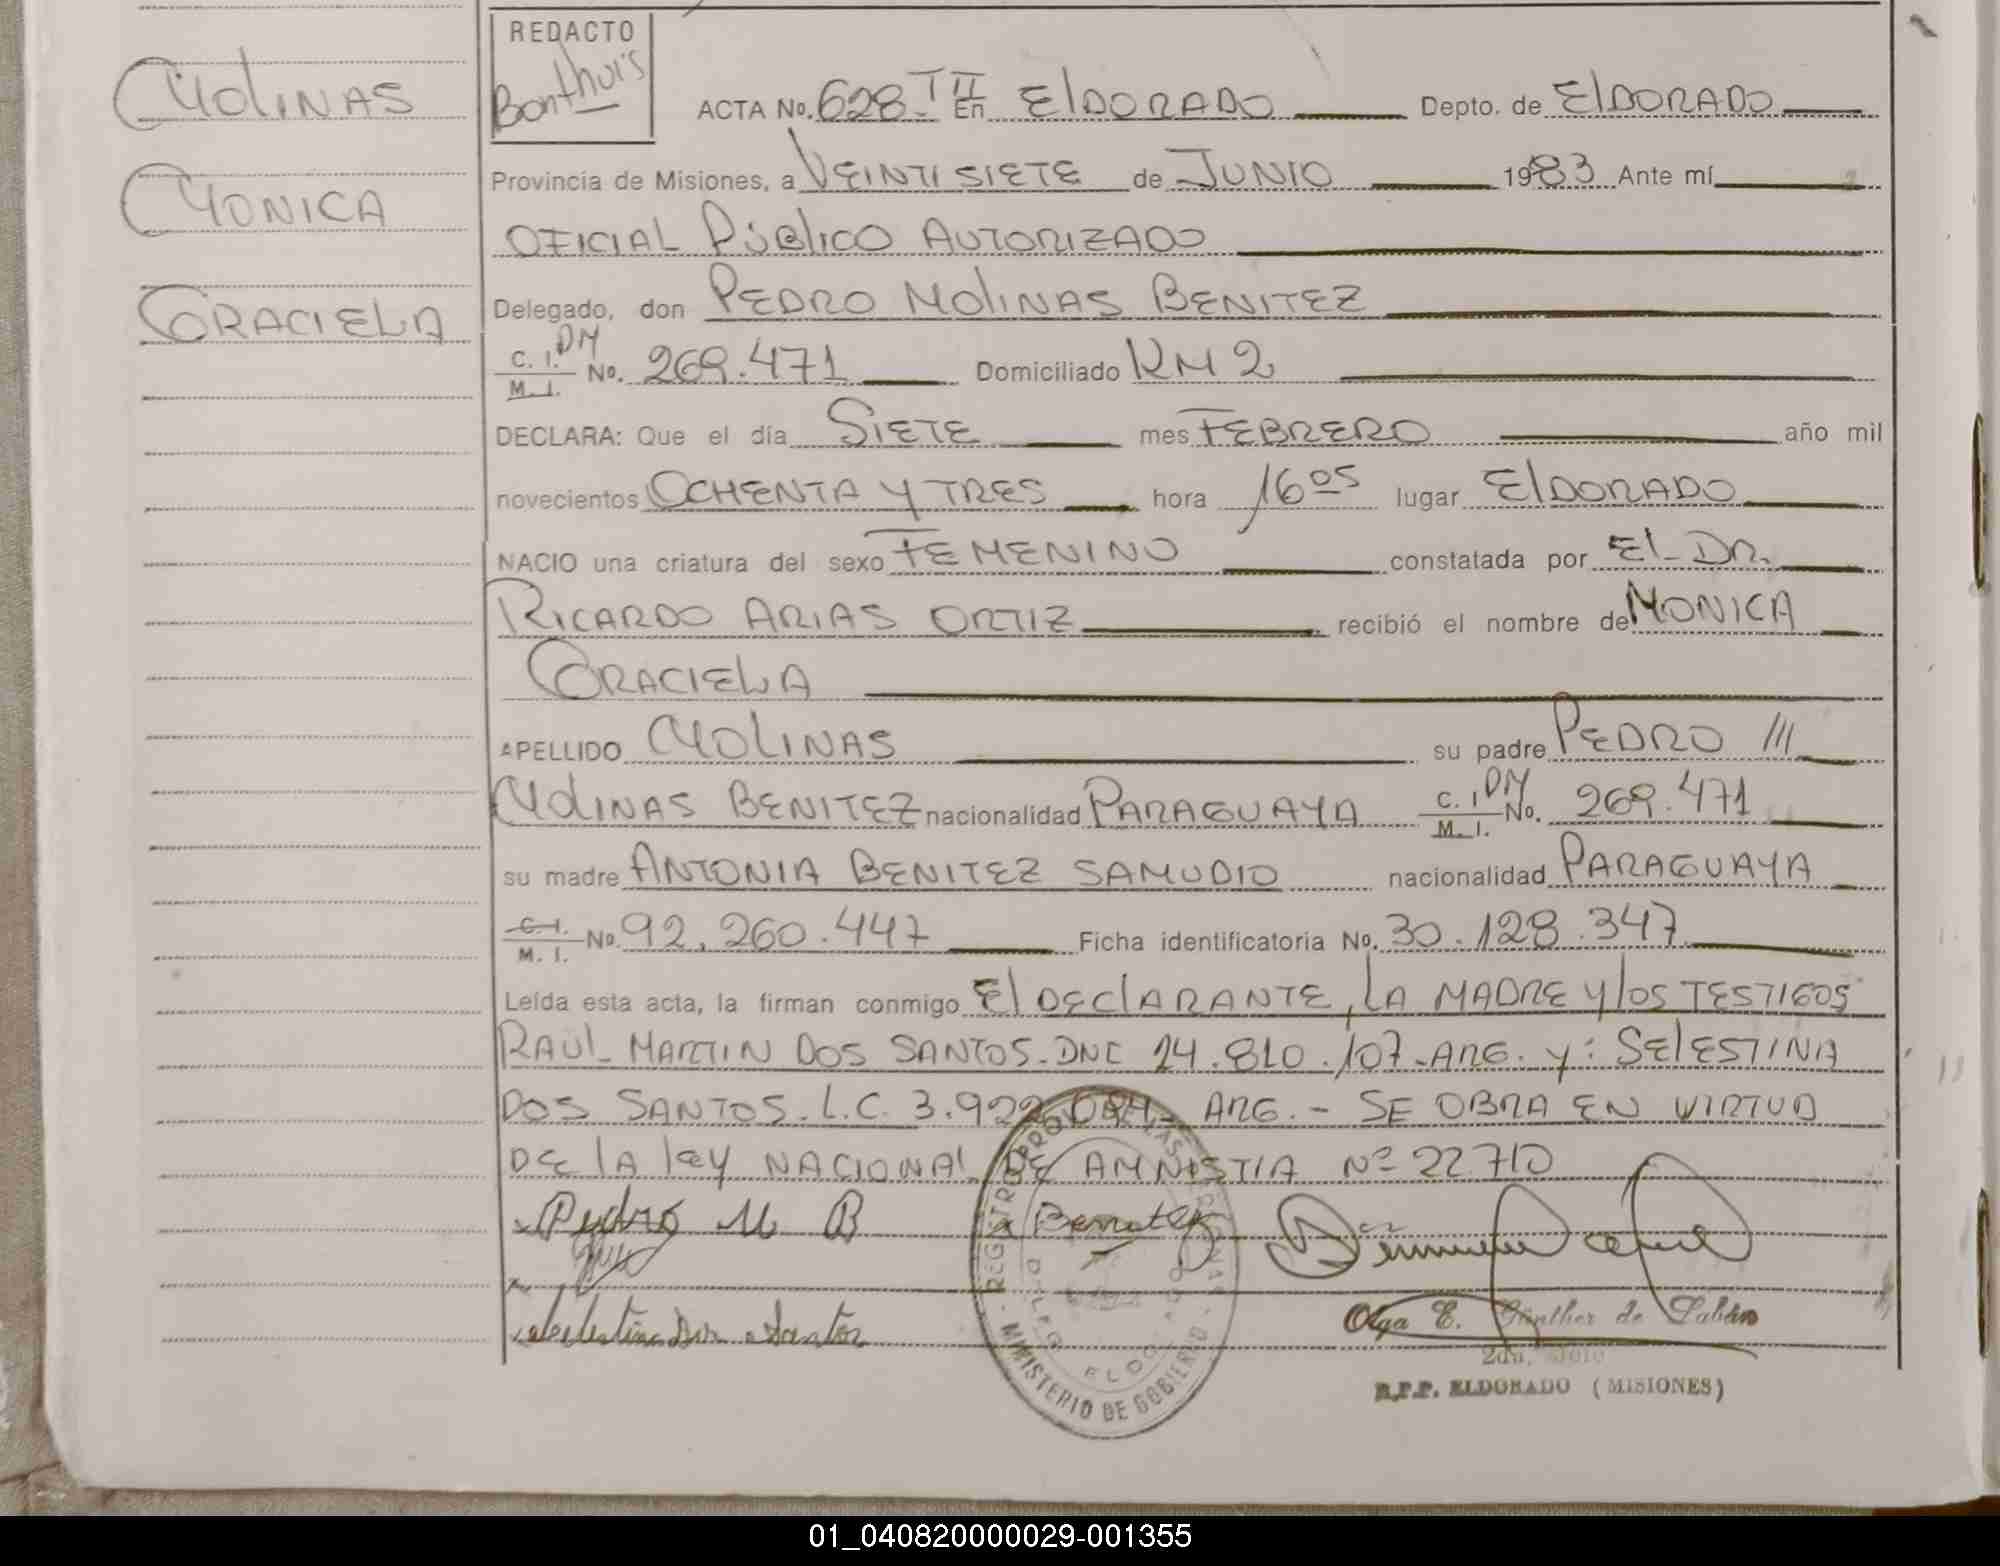 MOLINAS
MONICA
GRACIELA
REDACTO
Bonthuis
ACTA No. 628 - T II En ElDORADO Depto. de ElDORADO
Provincia de Misiones, a VEINTISIETE de JUNIO 1983 Ante mí
OFICIAL PúBlICO AUTORIZADO
Delegado, don PEDRO MOlINAS BENITEZ
C. I. DM
M. I. No. 269.471 Domiciliado KM 2
DECLARA: Que el día SIETE mes FEBRERO año mil
novecientos OCHENTA Y TRES hora 16 05 lugar ElDORADO
NACIO una criatura del sexo FEMENINO constatada por El DR.
RICARDO ARIAS ORTIZ recibió el nombre de MONICA
GRACIELA
APELLIDO MOLINAS su padre PEDRO ///
MOlINAS BENITEZ nacionalidad PARAGUAYA C. I. DM
M. I. No. 269.471
su madre ANTONIA BENITEZ SAMUDIO nacionalidad PARAGUAYA
C. I.
M. I. No. 92.260.447 Ficha identificatoria No. 30.128.347
Leída esta acta, la firman conmigo El DEClARANTE, LA MADRE Y lOS TESTIGOS
RAUL MARTIN DOS SANTOS-DNI 14.810.107-ARG. y: SElESTINA
DOS SANTOS.L.C. 3.922. ARG.- SE OBRA EN VIRTUD
DE lA lEY NACIONAl DE AMNISTIA Nº 22.710
Pedro M B Benitez
Selestina Dos Santos
Olga E. Günther de
2da. Jefe
R.P.P. ELDORADO (MISIONES)
REGISTRO PROV. DE LAS PERSONAS
DELEG. ELDORADO
MINISTERIO DE GOBIERNO
01_040820000029-001355